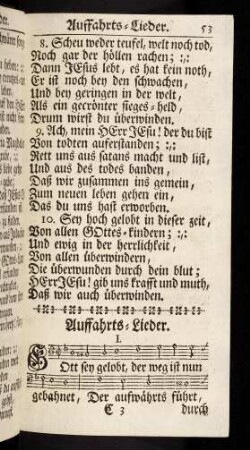 Auffahrts-Lieder. 53
8. Scheu weder teufel, welt noch tod,
Noch gar der höllen rachen; :,:
Dann JEsus lebt, es hat kein noth,
Er ist noch bey den schwachen,
Und bey geringen in der welt,
Als ein gecrönter sieges-held,
Drum wirst du überwinden.
9. Ach, mein HErr JEsu! der du bist
Von todten auferstanden; :,:
Rett uns aus satans macht und list,
Und aus des todes banden,
Daß wir zusammen ins gemein,
Zum neuen leben gehen ein,
Das du uns hast erworben.
10. Sey hoch gelobt in dieser zeit,
Von allen GOttes-kindern; :,:
Und ewig in der herrlichkeit,
Von allen überwindern,
Die überwunden durch dein blut;
HErr JEsu! gib uns krafft und muth,
Daß wir auch überwinden.
Auffahrts-Lieder.
1.
GOtt sey gelobt, der weg ist nun
gebahnet, Der aufwährts führt,
C 3 durch